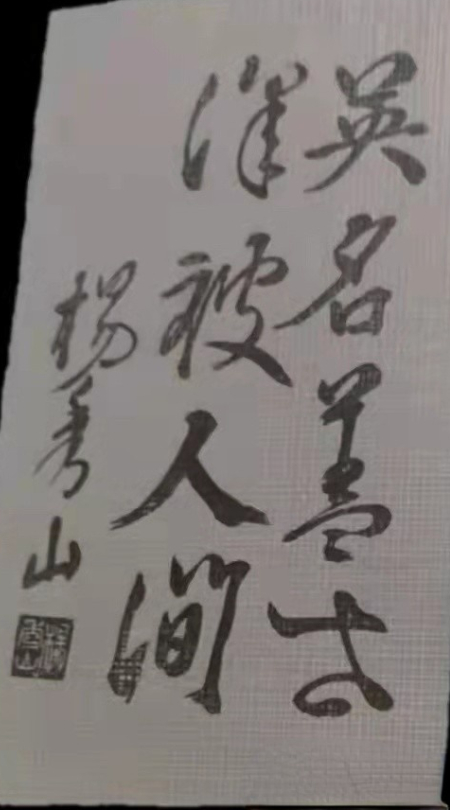 英名盖世
泽被人间
杨秀山